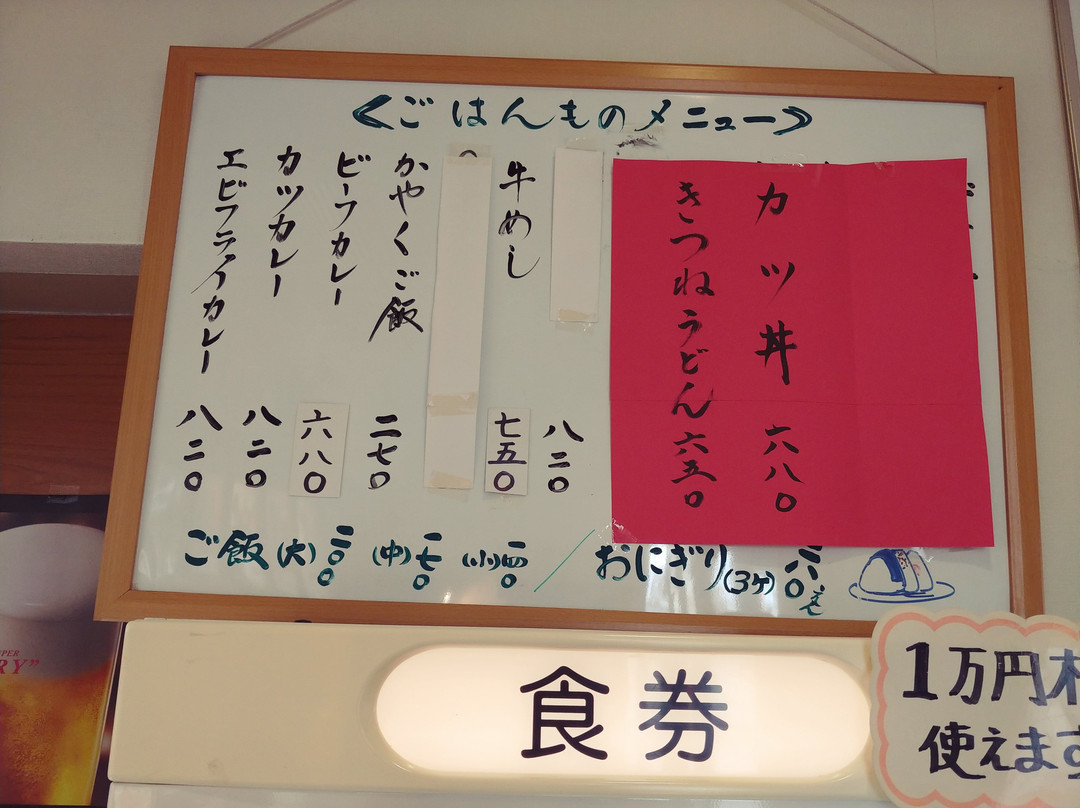 ≪ごはんものメニュー≫
カツ丼 六八〇
きつねうどん 六五〇
八二〇
牛めし 七五〇
かやくご飯 二七〇
ビーフカレー 六八〇
カツカレー 八二〇
エビフライカレー 八二〇
ご飯(大)二〇〇 (中)一七〇 (小)一四〇 / おにぎり(3ケ)
食券
1万円札
使えます
RY"